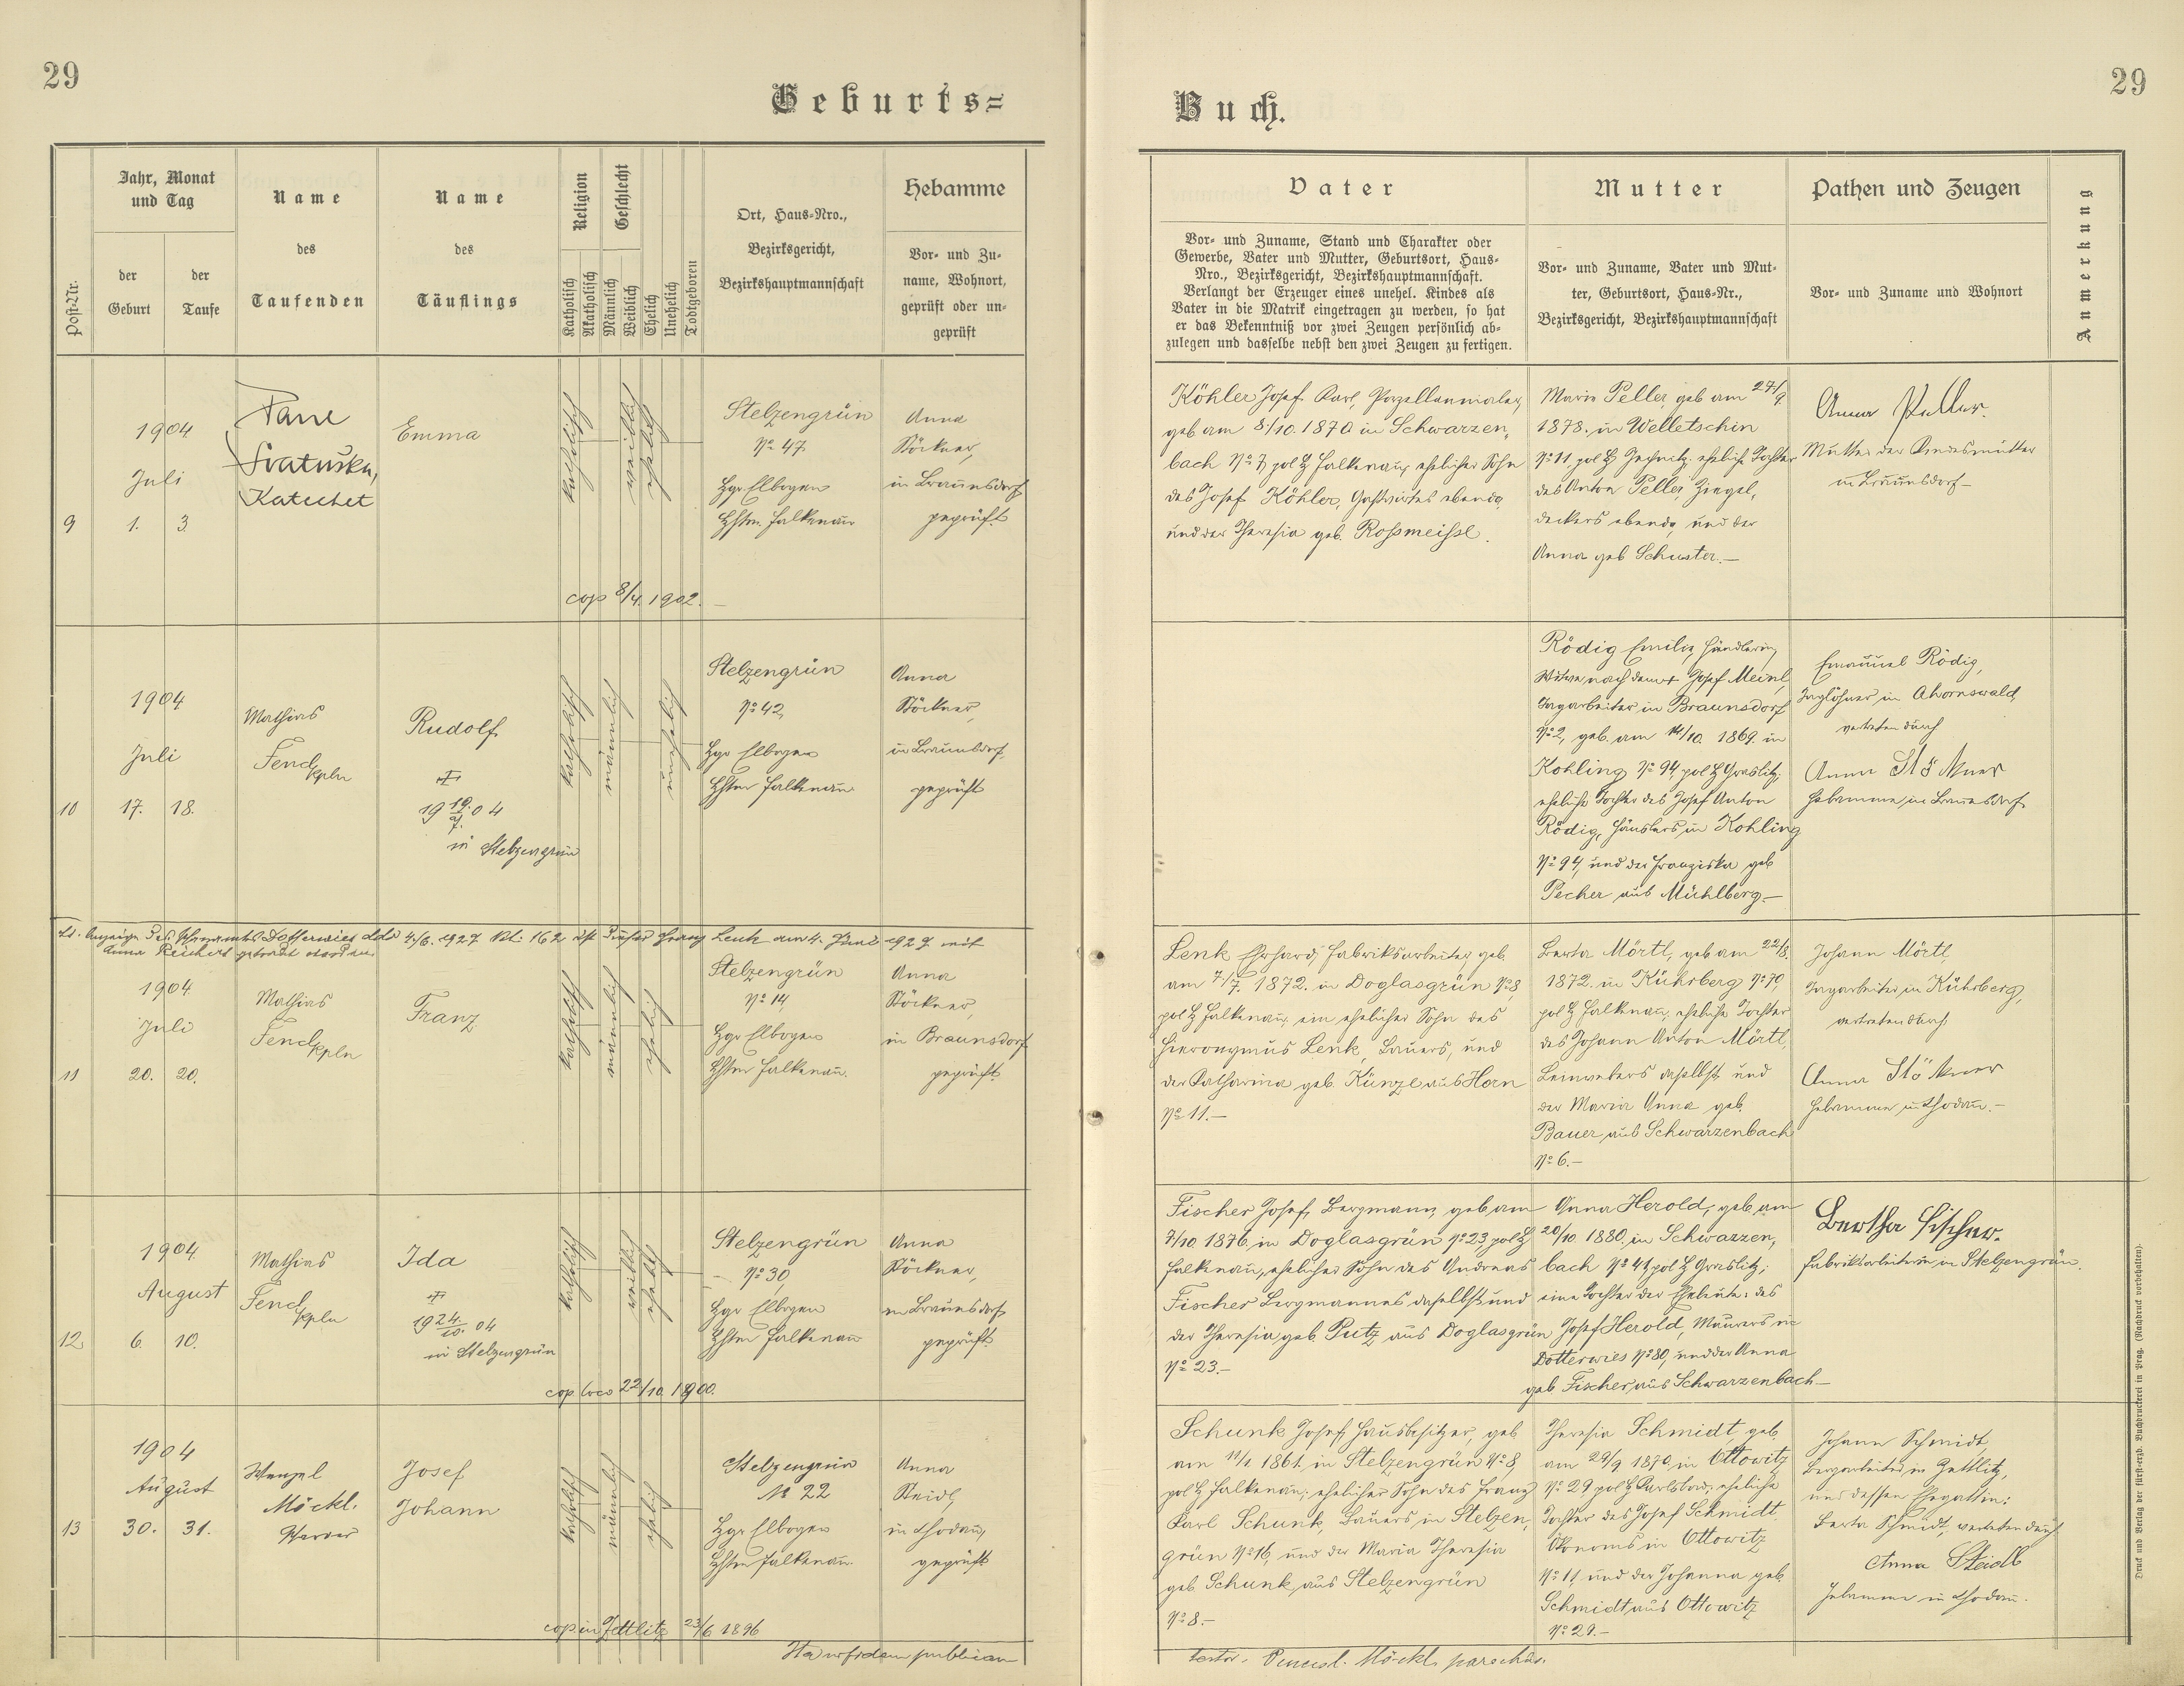 29
Geburts=
Jahr, Monat
und Tag
der
Geburt
der
Taufe
Post-Nr.
Name
des
Taufenden
Name
des
Täuflings
Religion
Katholisch
Akatholisch
Geschlecht
Männlich
Weiblich
Ehelich
Unehelich
Todtgeboren
Ort, Haus-Nro.,
Bezirksgericht,
Bezirkshauptmannschaft
Hebamme
Vor- und Zu-
name, Wohnort,
geprüft oder un-
geprüft
9
1904
Juli
1. 3.
Katechet
Emma
katholisch
weiblich
ehelich
Stelzengrün
No 47
Bgr Elbogen
Bhstm. Falkenau
Anna
Stöckner,
in Braunsdorf
geprüft
cop 8/4. 1902.
10
1904
Juli
17. 18.
Mathias
Fend
kpln
Rudolf
19 19./7. 04
in Stelzengrün
katholisch
männlich
unehelich
Stelzengrün
No 42,
Bgr Elbogen
Bhstm Falkenau
Anna
Stöckner,
in Braunsdorf,
geprüft
Lt. Anzeige des Pfarramtes Dotterwies ddo 4./6. 1927 Zl. 162 ist dieser Franz Lenk am 4. Juni 1927 mit
Anna Reichert getraut worden.
11
1904
Juli
20. 20.
Mathias
Fend
kpln
Franz
katholisch
männlich
ehelich
Stelzengrün
No 14,
Bgr Elbogen
Bhstm Falkenau.
Anna
Stöckner,
in Braunsdorf
geprüft
12
1904
August
6. 10.
Mathias
Fend
kpln
Ida
19 24./10. 04
in Stelzengrün
katholisch
weiblich
ehelich
Stelzengrün
No 30,
Bgr Elbogen
Bhstm Falkenau
Anna
Stöckner,
in Braunsdorf,
geprüft.
cop loco 22/10. 1900.
13
1904
August
30. 31.
Wenzel
Möckl.
Pfarrer
Josef
Johann
katholisch
männlich
ehelich
Stelzengrün
No 22
Bgr Elbogen
Bhstm Falkenau.
Anna
Steidl,
in Chodau,
geprüft
cop in Zettlitz 23/6 1896
Ita in fidem publicam
29
Buch.
Vater
Vor- und Zuname, Stand und Charakter oder
Gewerbe, Vater und Mutter, Geburtsort, Haus-
Nro., Bezirksgericht, Bezirkshauptmannschaft.
Verlangt der Erzeuger eines unehel. Kindes als
Vater in die Matrik eingetragen zu werden, so hat
er das Bekenntniß vor zwei Zeugen persönlich ab-
zulegen und dasselbe nebst den zwei Zeugen zu fertigen.
Mutter
Vor- und Zuname, Vater und Mut-
ter, Geburtsort, Haus-Nr.,
Bezirksgericht, Bezirkshauptmannschaft
Pathen und Zeugen
Vor- und Zuname und Wohnort
Anmerkung
Köhler Josef Karl, Porzellanmaler,
geb am 8./10. 1870 in Schwarzen„
bach No 7, pol Bz Falkenau, ehelicher Sohn
des Josef Köhler, Gastwirtes ebenda,
und der Theresia geb. Rossmeissl.
Maria Peller, geb am 27./9.
1878. in Welletschin
No 11, pol Bz Jechnitz. eheliche Tochter
des Anton Peller Ziegel„
deckers ebenda, und der
Anna geb Schuster.—
Anna Peller.
Mutter der Kindesmutter
in Braunsdorf—
Rödig Emilia, Händlerin,
Witwe nach dem + Josef Meinl,
Tagarbeiter in Braunsdorf
No 2, geb. am 14/10. 1869. in
Kohling No 94, pol Bz Graslitz,
eheliche Tochter des Josef Anton
Rödig, Häuslers, in Kohling
No 94, und der Franziska geb
Pecher aus Mühlberg—
Emanuel Rödig,
Taglöhner in Ahornswald,
vertreten durch
Anna Stöckner
Hebamme, in Braunsdorf,
Lenk Erhard, Fabriksarbeiter, geb.
am 7/7. 1872. in Doglasgrün No 8,
pol Bz Falkenau, ein ehelicher Sohn des
Hieronymus Lenk, Bauers, und
der Katharina geb. Künzl aus Horn
No 11.—
Berta Mörtl, geb am 22/8.
1872. in Kührberg No 70,
pol Bz Falkenau, eheliche Tochter
des Johann Anton Mörtl,
Leinwebers daselbst und
der Maria Anna geb.
Bauer aus Schwarzenbach
No 6.—
Johann Mörtl,
Tagarbeiter in Kührberg,
vertreten durch
Anna Stöckner
Hebamme in Chodau.—
Fischer Josef, Bergmann, geb am
7/10. 1876, in Doglasgrün No 23, pol Bz
Falkenau, ehelicher Sohn des Andreas
Fischer Bergmannes daselbst und
der Theresia geb Putz aus Doglasgrün
No 23.—
Anna Herold, geb am
20/10. 1880, in Schwarzen„
bach No 41, pol Bz Graslitz,
eine Tochter der Eheleute: des
Josef Herold, Maurers in
Dotterwies No 80, und der Anna
geb Fischer, aus Schwarzenbach—
Bertha Fischer.
Fabriksarbeiterin in Stelzengrün.
Schunk Josef Hausbesitzer, geb
am 11/1. 1861. in Stelzengrün No 8,
pol Bz Falkenau, ehelicher Sohn des Franz
Karl Schunk, Bauers, in Stelzen„
grün No 16, und der Maria Theresia
geb. Schunk, aus Stelzengrün
No 8.—
Theresia Schmidt, geb.
am 29/9 1870, in Ottowitz
No 29, pol Bz Karlsbad, eheliche
Tochter des Josef Schmidt,
Ökonoms in Ottowitz
No 11, und der Johanna geb.
Schmidt aus Ottowitz
No 29.—
Johann Schmidt,
Bergarbeiter in Zettlitz,
und dessen Ehegattin:
Berta Schmidt, vertreten durch
Anna Steidl
Hebamme in Chodau.
testor. Vencesl. Möckl, parochus.
Druck und Verlag der fürst-erzb. Buchdruckerei in Prag. (Nachdruck vorbehalten).